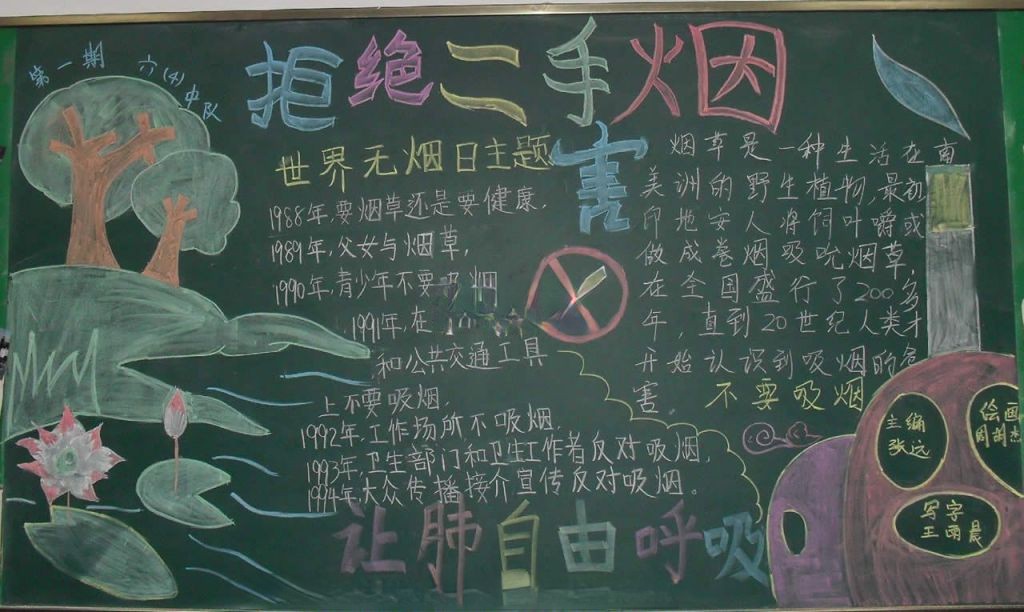 第一期
六(4)
中队
拒绝二手烟
害
世界无烟日主题
1988年,要烟草还是要健康.
1989年,父女与烟草,
1990年,青少年不要 烟
1991年,在
和公共交通工具
上不要吸烟.
1992年,工作场所不吸烟.
1993年,卫生部门和卫生工作者反对吸烟,
1994年,大众传播接介宣传反对吸烟。
烟草是一种生活在南
美洲的野生植物,最初
印地安人将饲叶嚼或
做成卷烟吸吮烟草,
在全国盛行了200多
年,直到20世纪人类才
开始认识到吸烟的危
害。
不要吸烟
让肺自由呼吸
主编
张远
绘画
写字
王雨晨